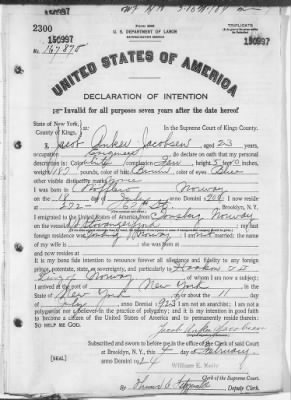 TRIPLICATE
Form 2202
U. S. DEPARTMENT OF LABOR
NATURALIZATION SERVICE
2300
150997
150997
No. 167878
UNITED STATES OF AMERICA
DECLARATION OF INTENTION
Invalid for all purposes seven years after the date hereof
State of New York,
County of Kings,
ss:
In the Supreme Court of Kings County.
I, Jacob Anker Jacobsen, aged 23 years,
occupation Engineer, do declare on oath that my personal
description is: Color white, complexion Fair, height 5 feet inches,
weight pounds, color of hair Brown, color of eyes Blue
other visible distinctive marks None
I was born in Norway
on the 18 day of July, anno Domini 1; I now reside
at 272 - St., Brooklyn, N.Y.
I emigrated to the United States of America from Tonsberg Norway
on the vessel Stavangerfjord; my last
foreign residence was Norway; I am not married; the name
of my wife is ; she was born at
and now resides at
It is my bona fide intention to renounce forever all allegiance and fidelity to any foreign
prince, potentate, state, or sovereignty, and particularly to Haakon VII
King of Norway, of whom I am now a subject;
I arrived at the port of New York, in the
State of New York, on or about the 11 day
of, anno Domini 1923; I am not an anarchist; I am not a
polygamist nor a believer in the practice of polygamy; and it is my intention in good faith
to become a citizen of the United States of America and to permanently reside therein:
SO HELP ME GOD.
Jacob Anker Jacobsen
Subscribed and sworn to before me in the office of the Clerk of said Court
at Brooklyn, N.Y., this 4 day of February
anno Domini 1924
[SEAL]
William E. Kelly
Clerk of the Supreme Court.
By, Deputy Clerk.